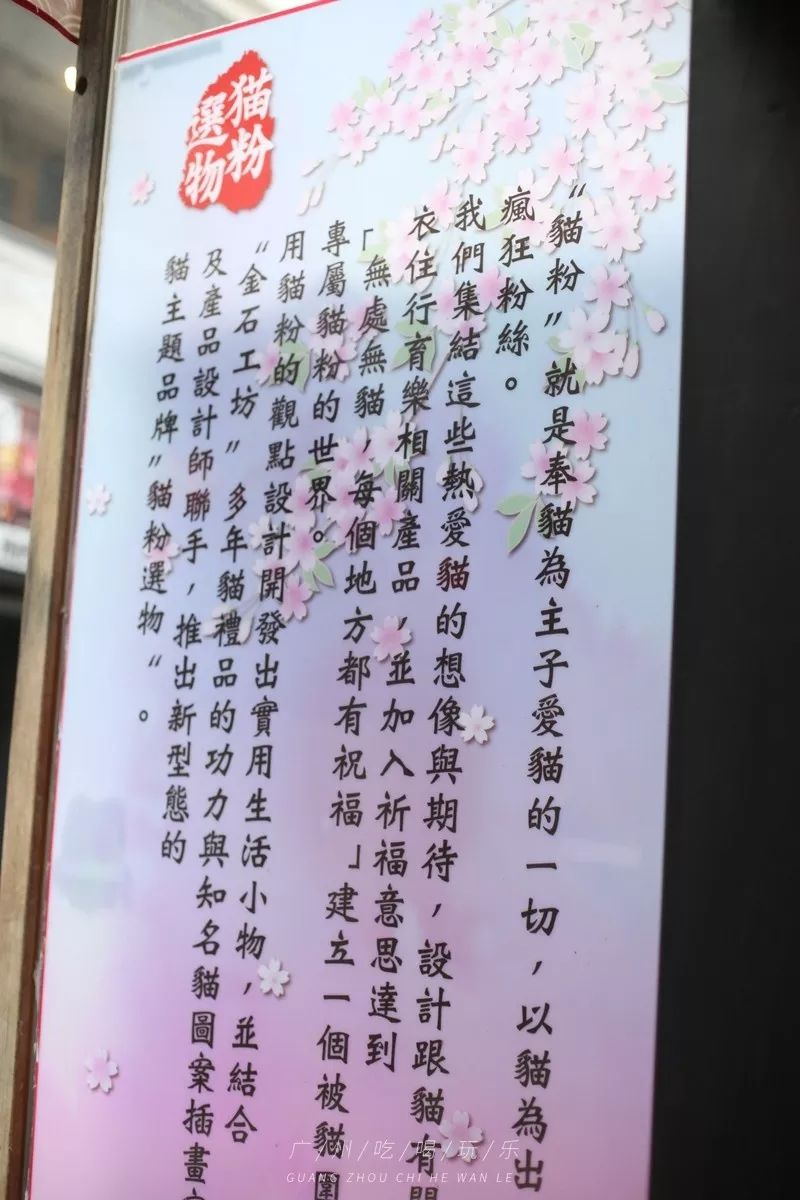 猫粉
選物
“貓粉”就是奉貓為主子愛貓的一切，以貓為出
瘋狂粉絲。
我們集結這些熱愛貓的想像與期待，設計跟貓有
衣住行育樂相關產品，並加入祈福意思達到
「無處無貓，每個地方都有祝福」建立一個被貓
專屬貓粉的世界。
用貓粉的觀點設計開發出實用生活小物，並結合
“金石工坊”多年貓禮品的功力與知名貓圖案插畫
及產品設計師聯手，推出新型態的
貓主題品牌”貓粉選物“。
广/州/吃/喝/玩/乐
GUANG ZHOU CHI HE WAN LE